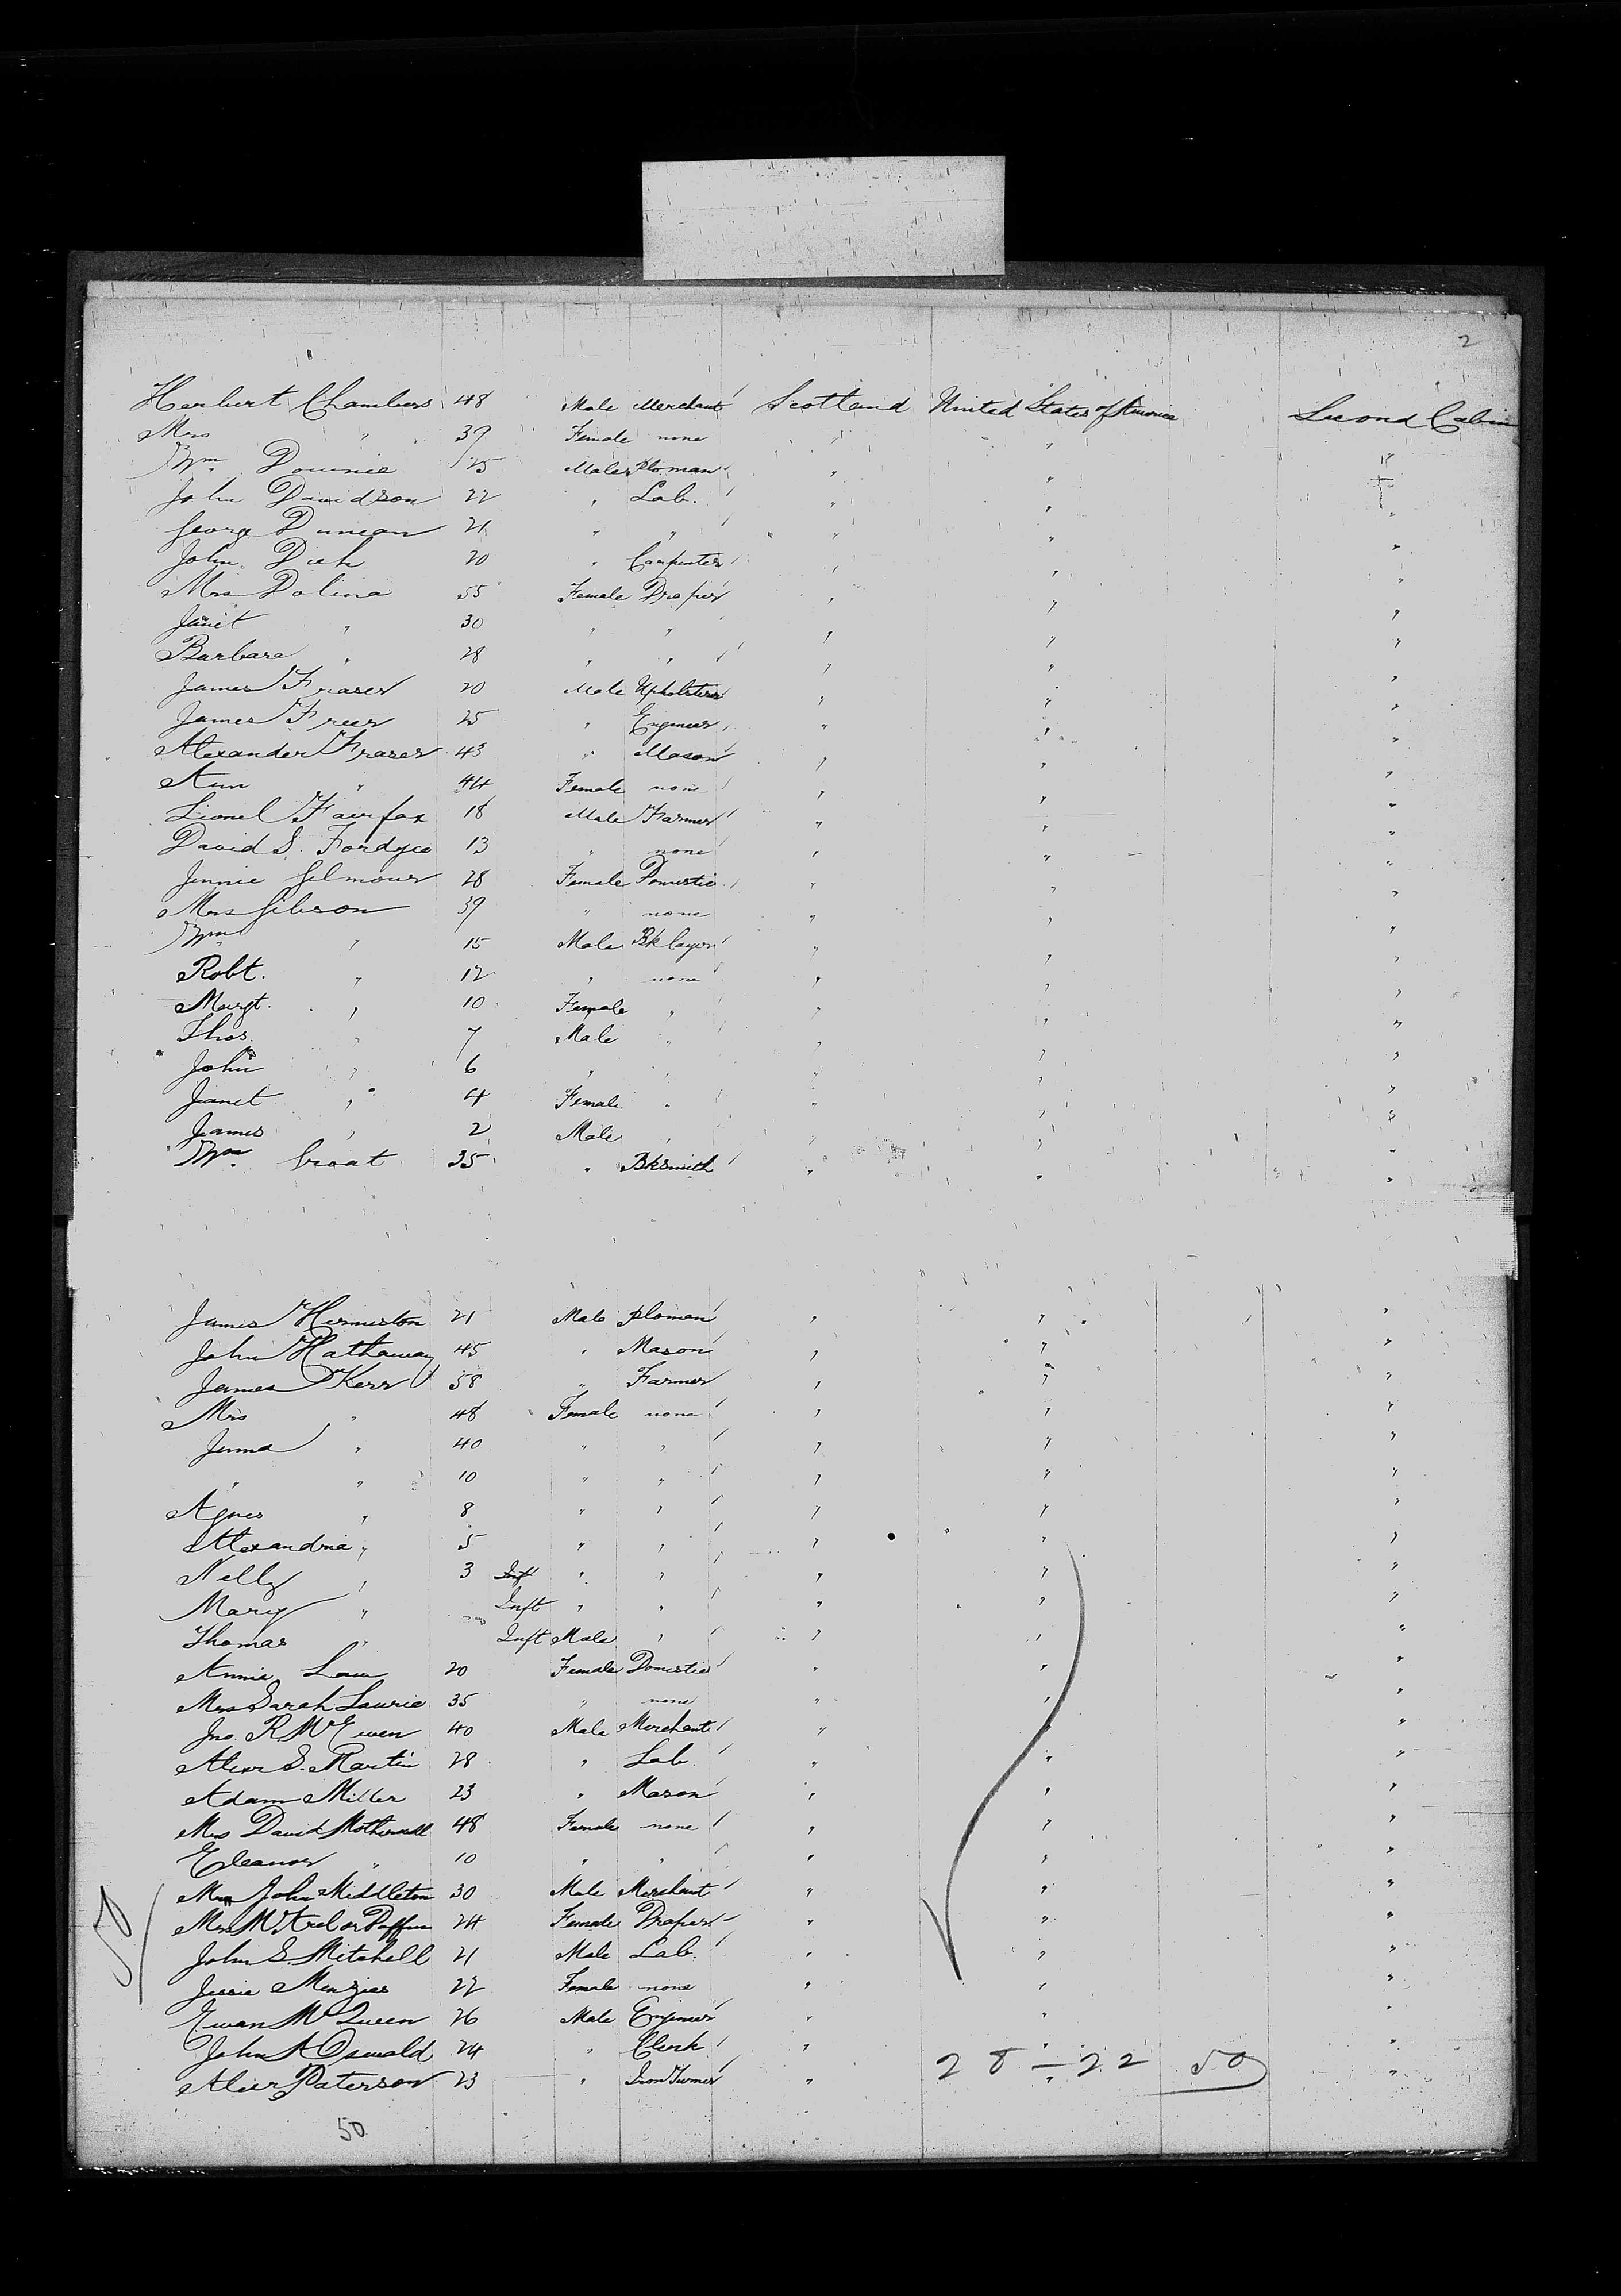 2
Herbert Chambers 48 Male Merchant Scotland United States of America Second Cabin
Mrs " 39 Female none " " "
Wm Downie 25 Male Ploman " " "
John Davidson 22 " Lab. " " "
George Duncan 21 " " " " "
John Dick 20 " Carpenter " " "
Mrs Dolina 55 Female Draper " " "
Janet " 30 " " " " "
Barbara " 28 " " " " "
James Fraser 20 Male Upholsterer " " "
James Freer 25 " Engineer " " "
Alexander Fraser 43 " Mason " " "
Ann " 44 Female none " " "
Lionel Fairfax 18 Male Farmer " " "
David S. Fordyce 13 " none " " "
Jennie Gilmour 28 Female Domestic " " "
Mrs Gibson 39 " none " " "
Wm " 15 Male Bklayer " " "
Robt. " 12 " none " " "
Margt. " 10 Female " " " "
Thos. " 7 Male " " " "
John " 6 " " " " "
Janet " 4 Female " " " "
James " 2 Male " " " "
Wm. 35 " Bksmith " " "
James Hermiston 21 Male Ploman " " "
John Hathaway 45 " Mason " " "
James Kerr 58 " Farmer " " "
Mrs " 48 Female none " " "
" 40 " " " " "
" " 10 " " " " "
Agnes " 8 " " " " "
Alexandria " 5 " " " " "
Nelly " 3 Inft " " " " "
Mary " Inft " " " " "
Thomas " Inft Male " " " "
Annie Law 20 Female Domestic " " "
Mrs Sarah Laurie 35 " none " " "
Jno. R. McEwen 40 Male Merchant " " "
Alexr S. Martin 28 " Lab " " "
Adam Miller 23 " Mason " " "
Mrs David Motherwell 48 Female none " " "
Eleanor " 10 " " " " "
John Middleton 30 Male Merchant " " "
50
24 Female Draper " " "
John S. Mitchell 21 Male Lab. " " "
Jessie Menzies 22 Female none " " "
Ewan McQueen 26 Male Engineer " " "
John A Oswald 24 " Clerk " " "
Alexr Paterson 23 " Iron Turner " " "
28 - 22 50
50